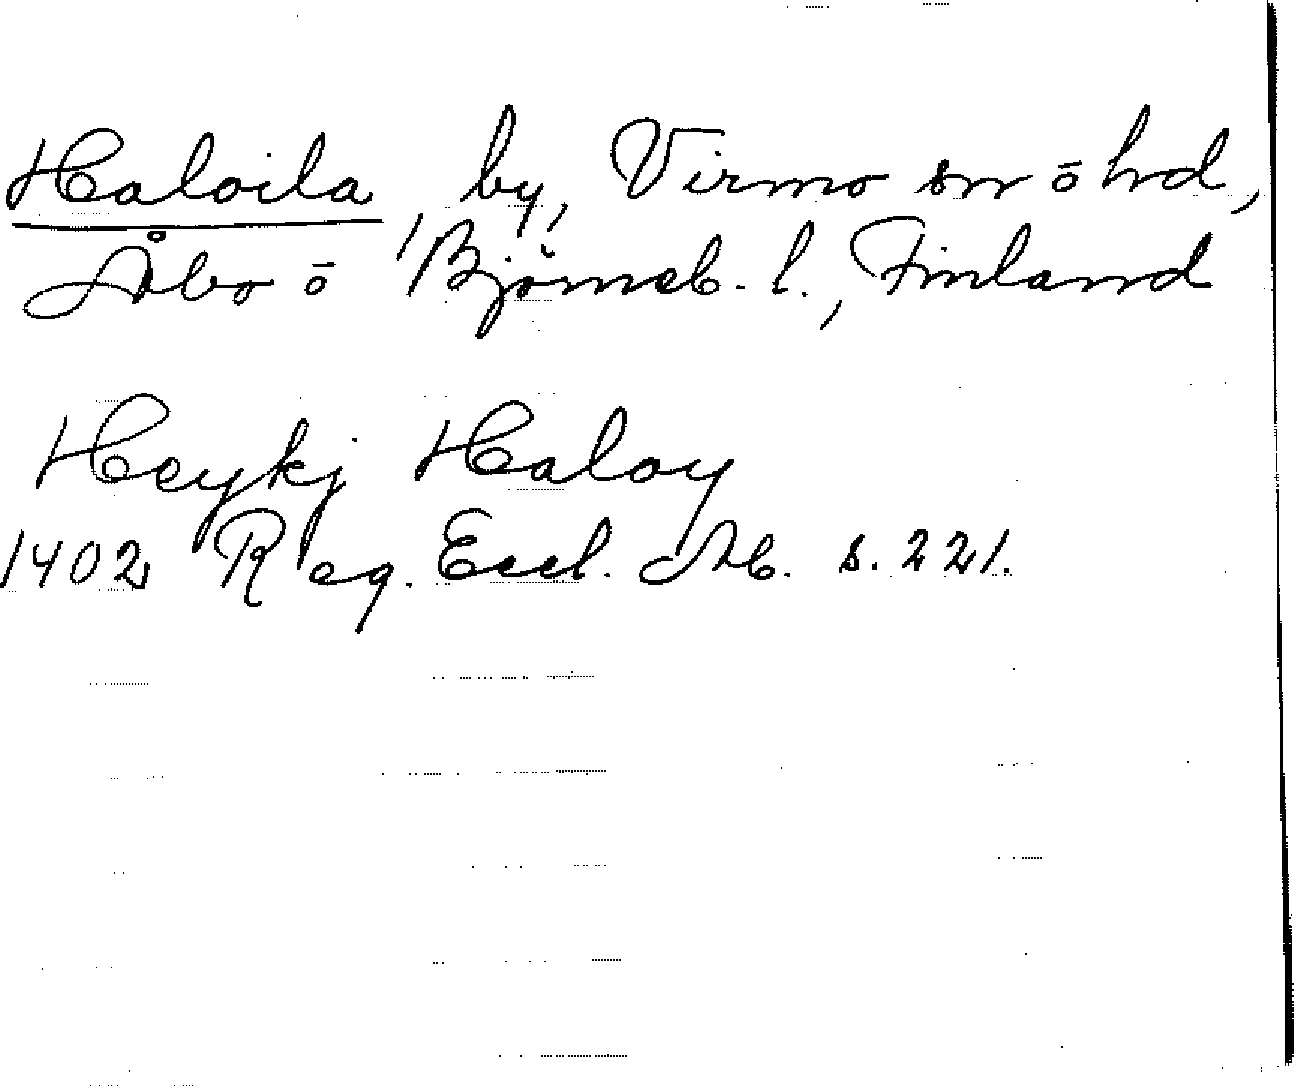 Haloila, by, Virmo sn ō hd,
Åbo ō Björneb. l., Finland
Heykj Haloy
1402 Reg. Eccl. Ab. s. 221.